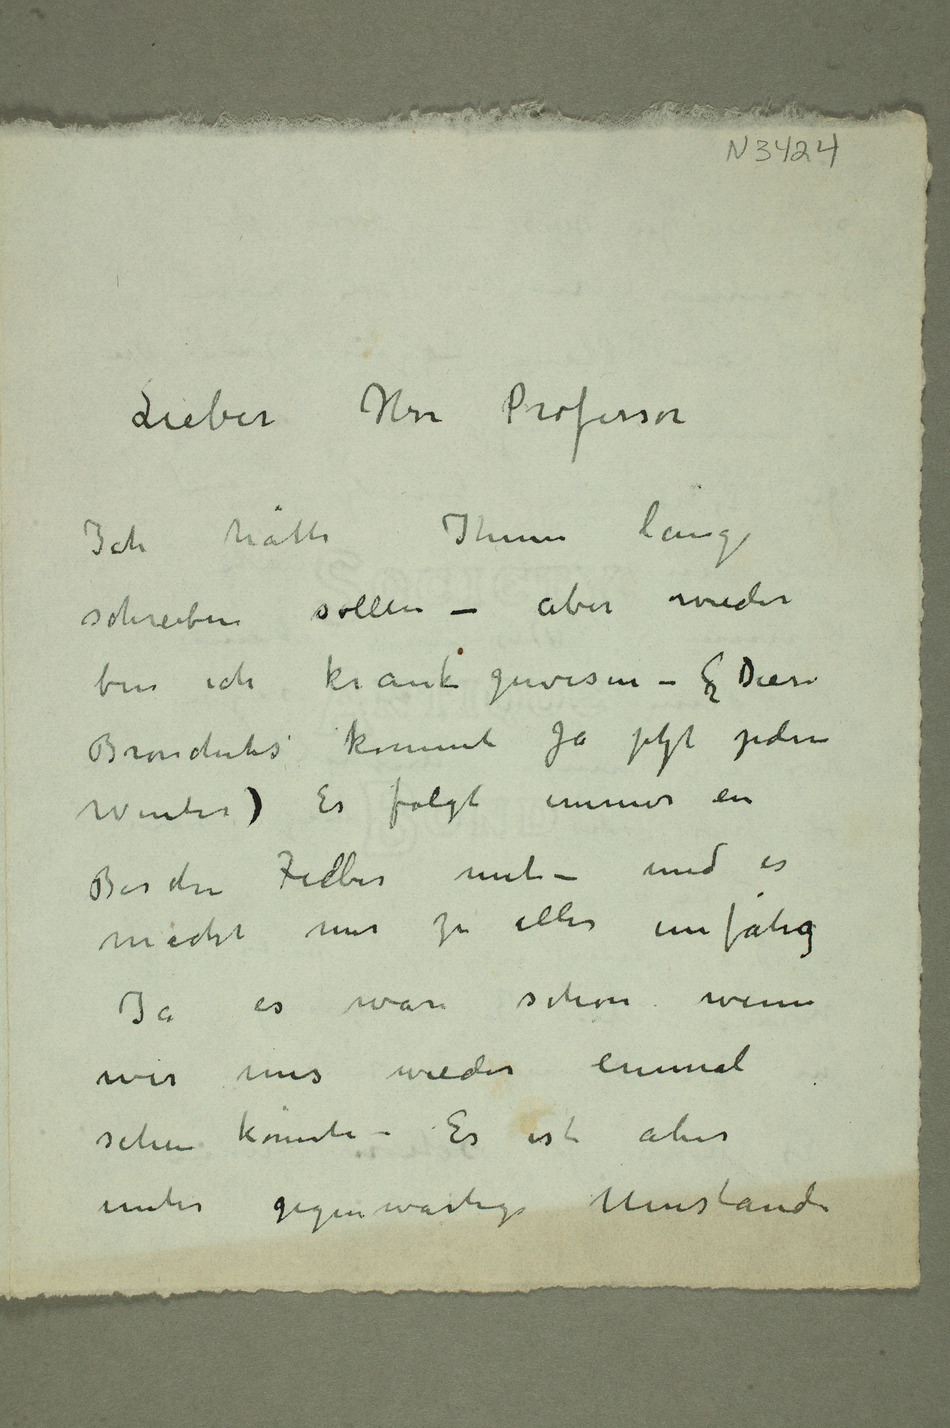 N 3424
Lieber Herr Professor
Ich hätte Ihnen lange
schreiben sollen – aber wieder
bin ich krank gewesen – (Diese
Bronchites kommt Ja jetzt jeden
Winter) Es folgt immer ein
Fieber mit – und es
macht mir zu alles unfähig
Ja es wäre schön wenn
wir uns wieder einmal
sehen könnte – Es ist aber
unter gegenwärtige Umstände